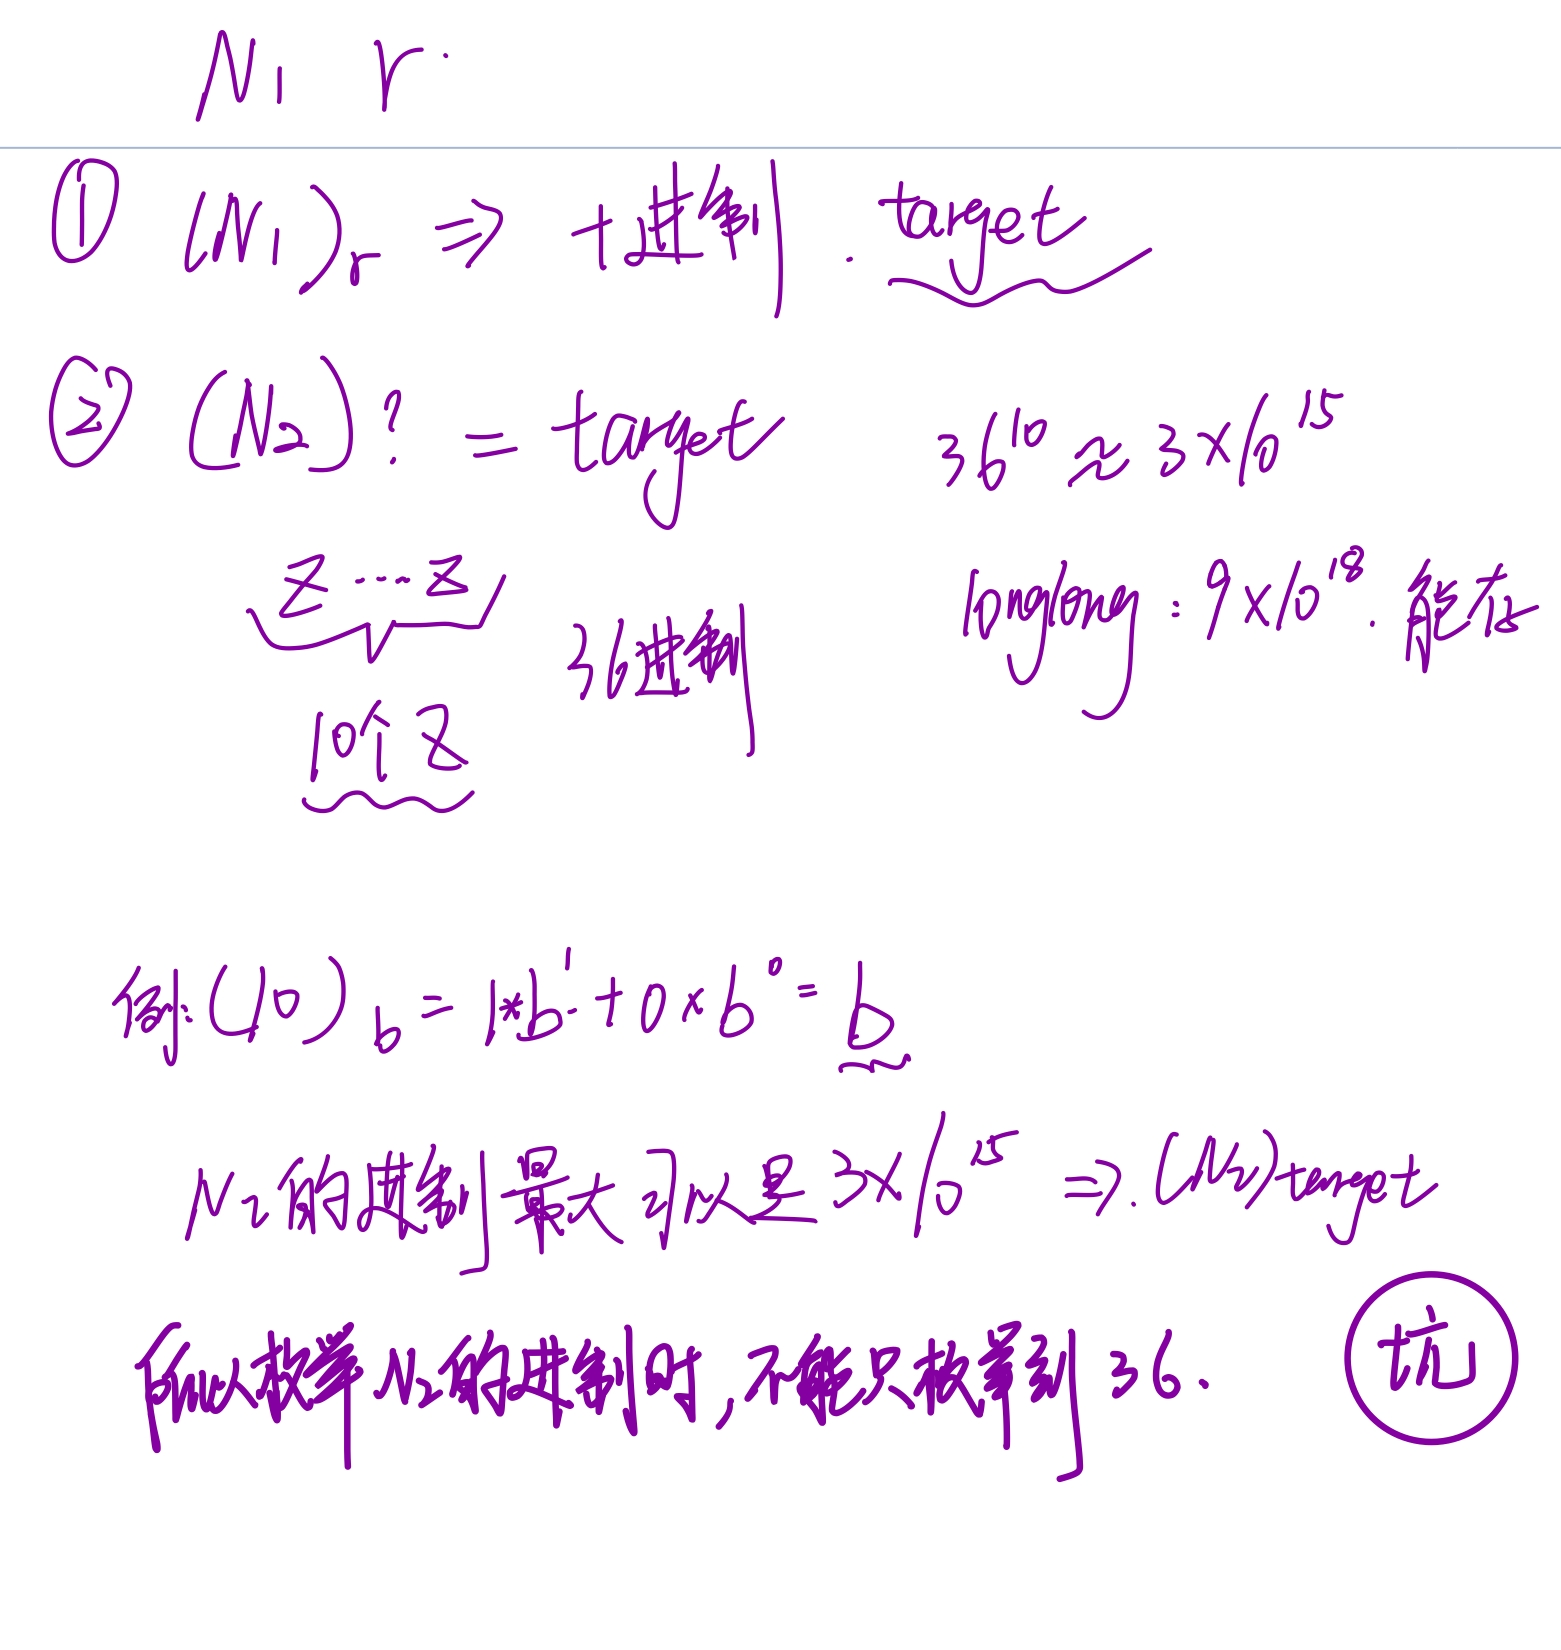 N1 r.
① (N1)r ⇒ 十进制. target
② (N2)? = target 36^10 ≈ 3×10^15
z ···· z longlong: 9×10^18. 能存
36进制
10个z
例:(10)b = 1*b^1 + 0×b^0 = b
N2的进制最大可以是 3×10^15 ⇒. (N2)target
所以枚举N2的进制时,不能只枚举到36. 坑